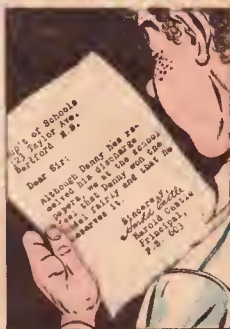 p't of Schools
123 Taylor Ave.
Dear Sir:
Although Danny has re-
ceived his discharge
papers, we at the school
feel that Danny won the
fairly and that he
deserves it.
Sincerely,
Harold Castle
Harold Castle
Principal,
P.S. 603